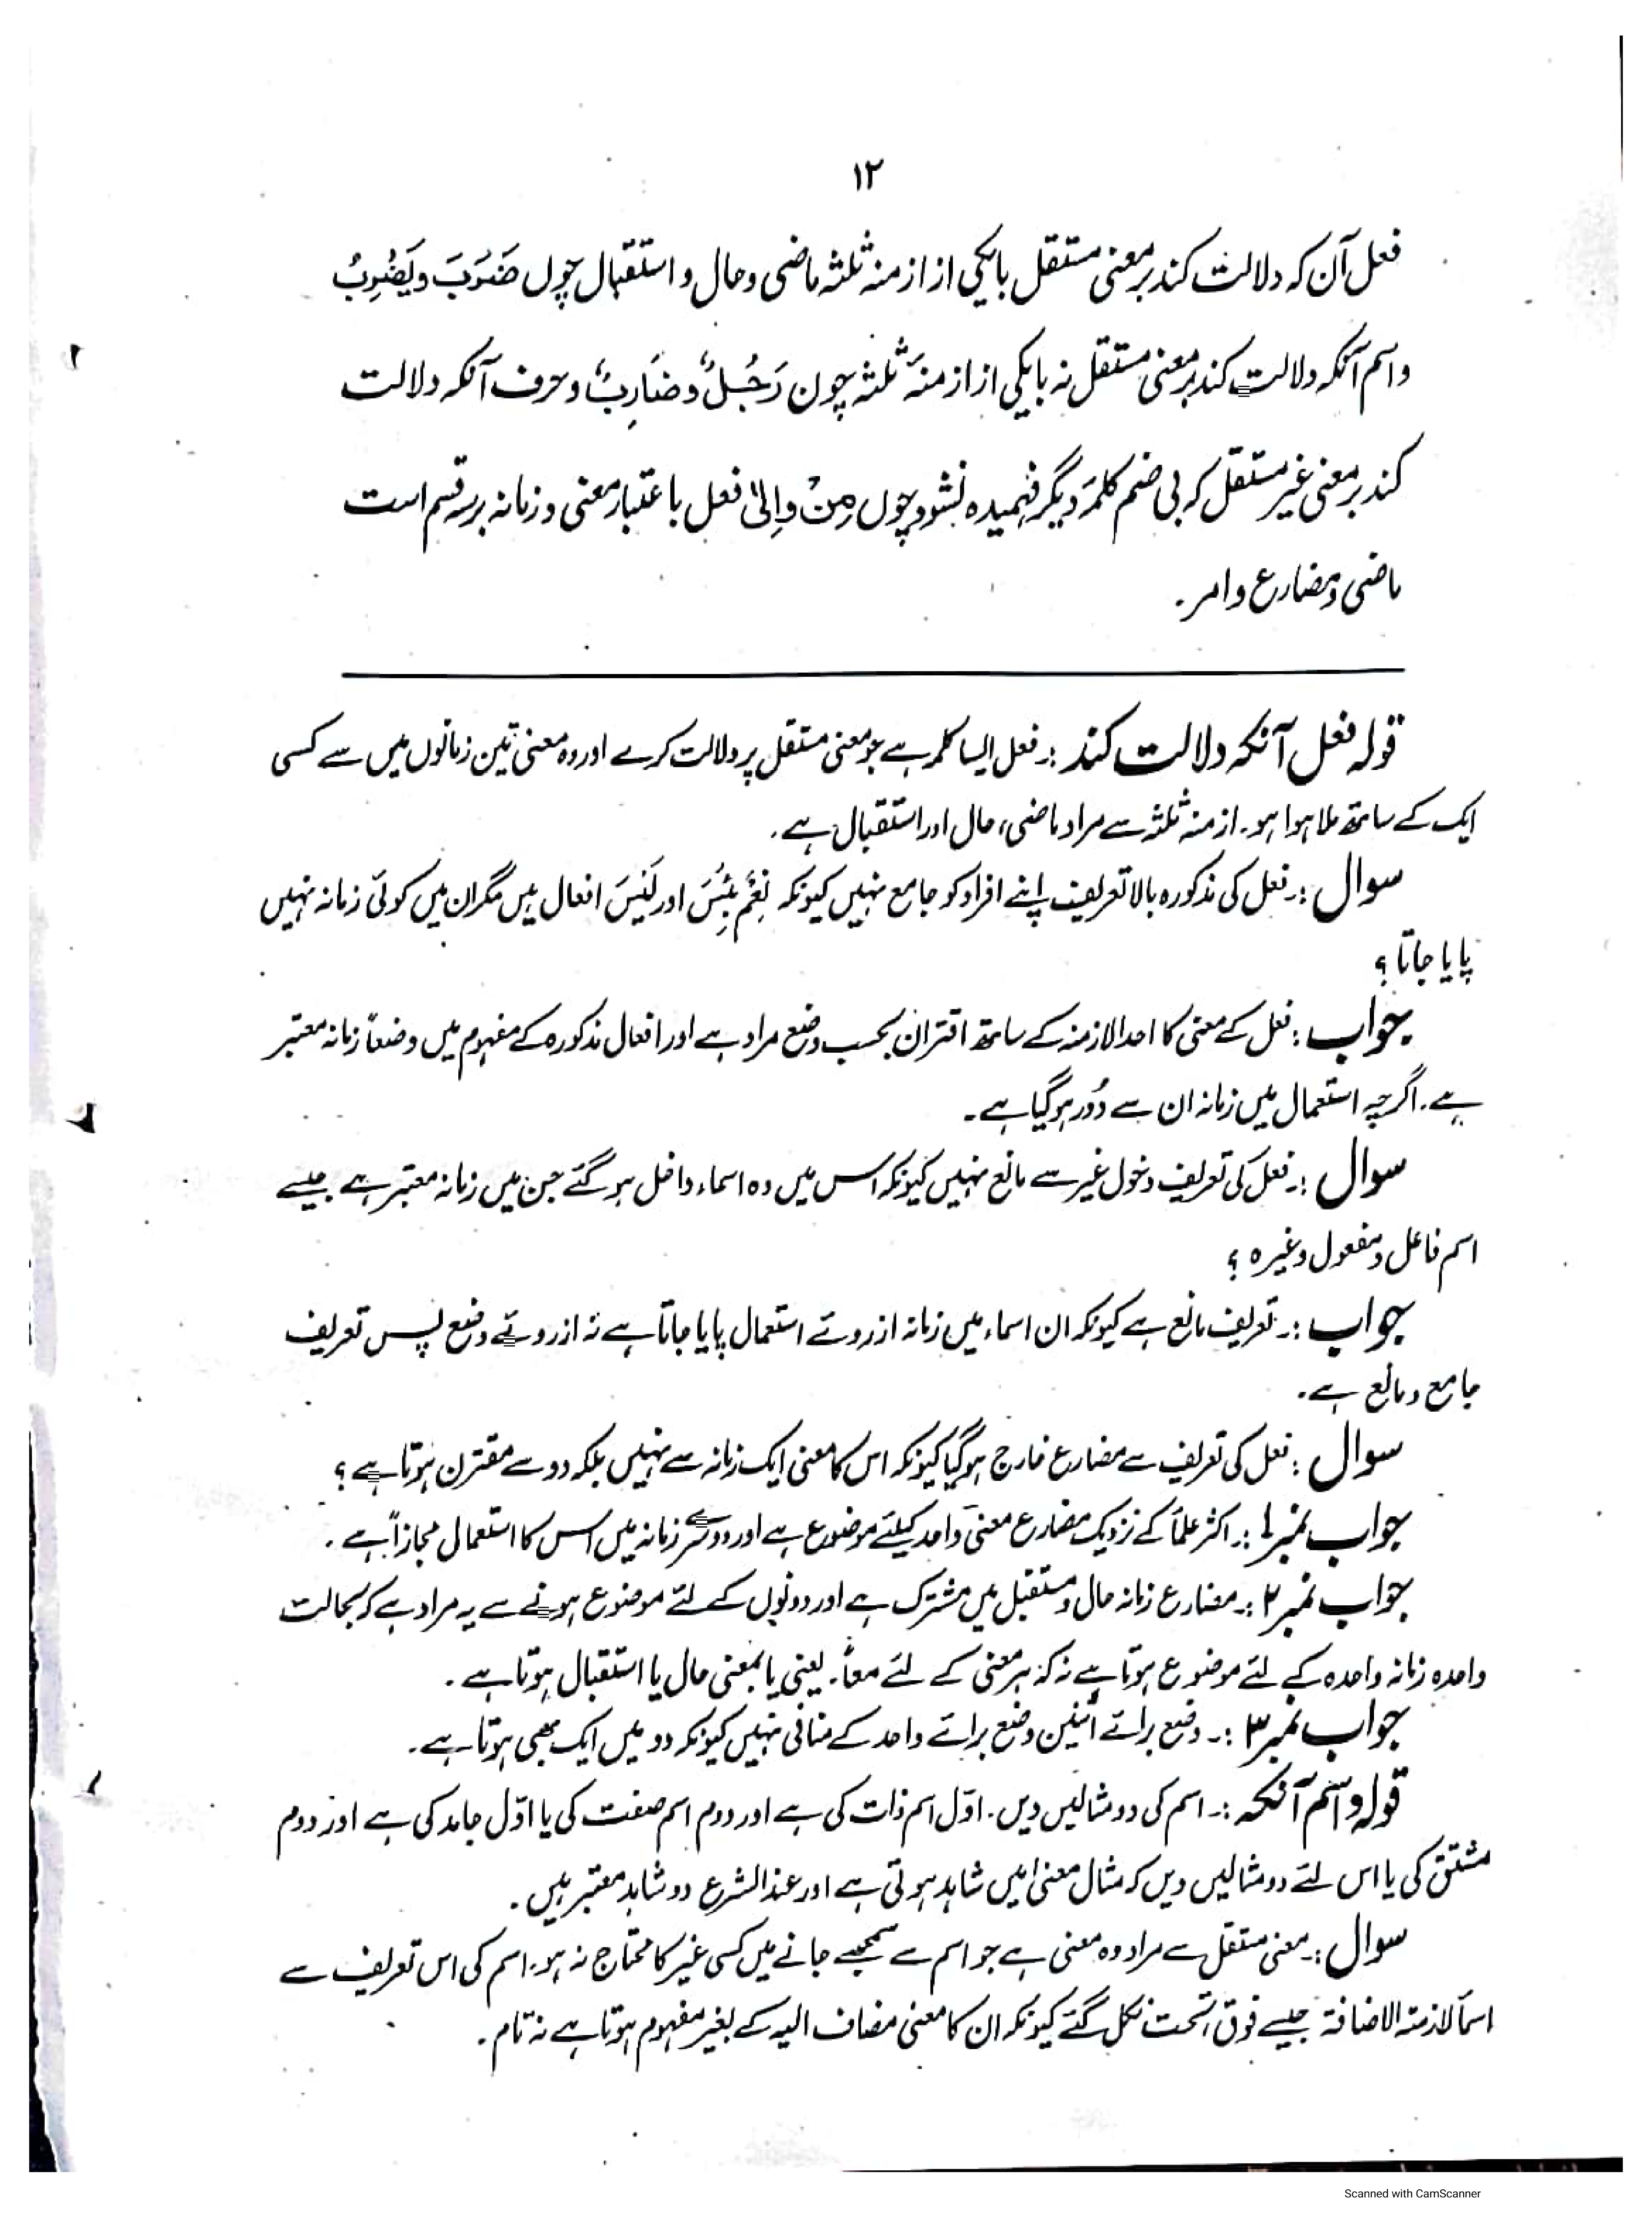 ۱۲
فعل آن کہ دلالت کند بر معنی مستقل بایکی از ازمنہ ثلثہ ماضی و حال و استقبال چوں ضَرَبَ و یَضْرِبُ
و اسم آنکہ دلالت کند بر معنی مستقل نہ بایکی از ازمنہٴ ثلثہ چون رَجُلٌ و ضَارِبٌ و حرف آنکہ دلالت
کند بر معنی غیر مستقل کہ بی ضم کلمہٴ دیگر فہمیدہ نشود چوں مِنْ و اِلیٰ فعل باعتبار معنی و زمانہ بر سہ قسم است
ماضی و مضارع و امر۔
قولہ فعل آنکہ دلالت کند :۔ فعل ایسا کلمہ ہے جو معنی مستقل پر دلالت کرے اور وہ معنی تین زمانوں میں سے کسی
ایک کے ساتھ ملا ہوا ہو۔ ازمنہ ثلثہ سے مراد ماضی، حال اور استقبال ہے۔
سوال :۔ فعل کی مذکورہ بالا تعریف اپنے افراد کو جامع نہیں کیونکہ نِعْمَ بِئْسَ اور لَیْسَ افعال ہیں مگر ان میں کوئی زمانہ نہیں
پایا جاتا ؟
جواب : فعل کے معنی کا احد الازمنہ کے ساتھ اقتران بحسب وضع مراد ہے اور افعال مذکورہ کے مفہوم میں وضعاً زمانہ معتبر
ہے۔ اگرچہ استعمال میں زمانہ ان سے دُور ہو گیا ہے۔
سوال :۔ فعل کی تعریف دخول غیر سے مانع نہیں کیونکہ اس میں وہ اسماء داخل ہو گئے جن میں زمانہ معتبر ہے جیسے
اسم فاعل و مفعول وغیرہ ؟
جواب :۔ تعریف مانع ہے کیونکہ ان اسماء میں زمانہ از روئے استعمال پایا جاتا ہے نہ از روئے وضع پس تعریف
جامع و مانع ہے۔
سوال : فعل کی تعریف سے مضارع خارج ہو گیا کیونکہ اس کا معنی ایک زمانہ سے نہیں بلکہ دو سے مقترن ہوتا ہے ؟
جواب نمبر ۱ :۔ اکثر علماً کے نزدیک مضارع معنی واحد کیلئے موضوع ہے اور دوسرے زمانہ میں اس کا استعمال مجازاً ہے۔
جواب نمبر ۲ :۔ مضارع زمانہ حال و مستقبل میں مشترک ہے اور دونوں کے لئے موضوع ہونے سے یہ مراد ہے کہ بحالت
واحدہ زمانہ واحدہ کے لئے موضوع ہوتا ہے نہ کہ ہر معنی کے لئے معاً۔ یعنی یا بمعنی حال یا استقبال ہوتا ہے۔
جواب نمبر ۳ :۔ وضع برائے اثنین وضع برائے واحد کے منافی نہیں کیونکہ دو میں ایک بھی ہوتا ہے۔
قولہ و اسم آنکہ :۔ اسم کی دو مثالیں دیں۔ اوّل اسم ذات کی ہے اور دوم اسم صفت کی یا اوّل جامد کی ہے اور دوم
مشتق کی یا اس لئے دو مثالیں دیں کہ مثال معنیٰ میں شاہد ہوتی ہے اور عند الشرع دو شاہد معتبر ہیں۔
سوال :۔ معنی مستقل سے مراد وہ معنی ہے جو اسم سے سمجھے جانے میں کسی غیر کا محتاج نہ ہو، اسم کی اس تعریف سے
اسمآ لازمۃ الاضافۃ جیسے فوق، تحت نکل گئے کیونکہ ان کا معنی مضاف الیہ کے بغیر مفہوم ہوتا ہے نہ تام۔
Scanned with CamScanner